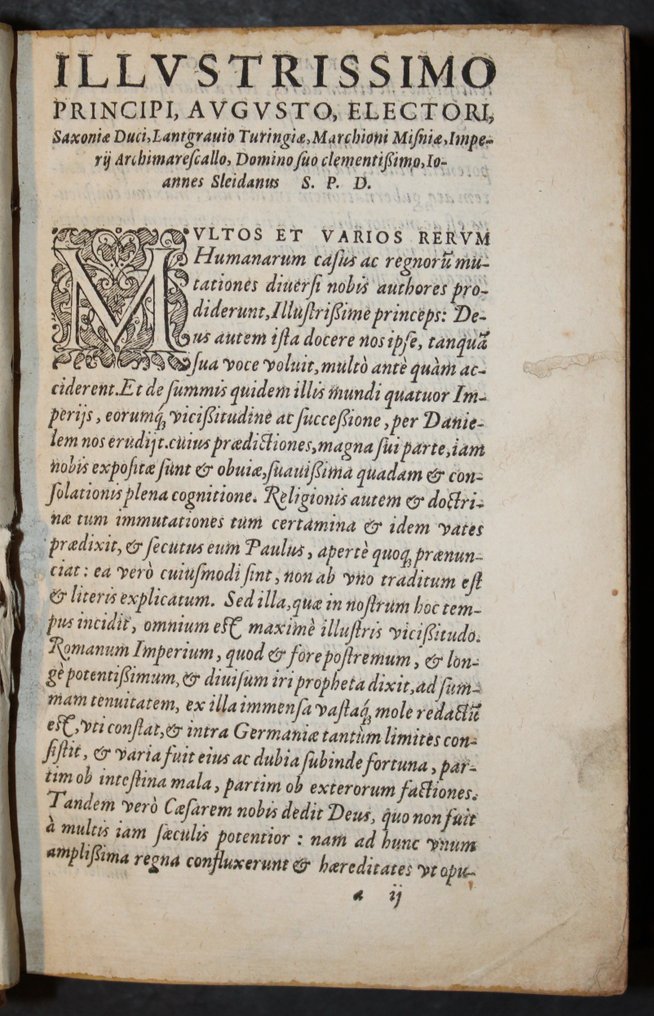 ILLVSTRISSIMO
PRINCIPI, AVGVSTO, ELECTORI,
Saxoniæ Duci, Lantgrauio Turingiæ, Marchioni Misniæ, Impe-
rij Archimarescallo, Domino suo clementißimo, Io-
annes Sleidanus S. P. D.
MVLTOS ET VARIOS RERVM
Humanarum casus ac regnorũ mu-
tationes diuersi nobis authores pro-
diderunt, Illustrißime princeps: De-
us autem ista docere nos ipse, tanquã
sua voce voluit, multò antè quàm ac-
ciderent. Et de summis quidem illis mundi quatuor Im-
perijs, eorumq́; vicißitudine ac succeßione, per Danie-
lem nos erudijt. cuius prædictiones, magna sui parte, iam
nobis expositæ sunt & obuiæ, suauißima quadam & con-
solationis plena cognitione. Religionis autem & doctri-
næ tum immutationes tum certamina & idem vates
prædixit, & secutus eum Paulus, apertè quoq; prænun-
ciat: ea verò cuiusmodi sint, non ab vno traditum est
& literis explicatum. Sed illa, quæ in nostrum hoc tem-
pus incidit, omnium est maximè illustris vicißitudo.
Romanum Imperium, quod & fore postremum, & lon-
gè potentißimum, & diuisum iri propheta dixit, ad sum-
mam tenuitatem, ex illa immensa vastaq́; mole redactũ
est, vti constat, & intra Germaniæ tantùm limites con-
sistit, & varia fuit eius ac dubia subinde fortuna, par-
tim ob intestina mala, partim ob exterorum factiones.
Tandem verò Cæsarem nobis dedit Deus, quo non fuit
à multis iam sæculis potentior: nam ad hunc vnum
amplißima regna confluxerunt & hæreditates vt opu-
a ij